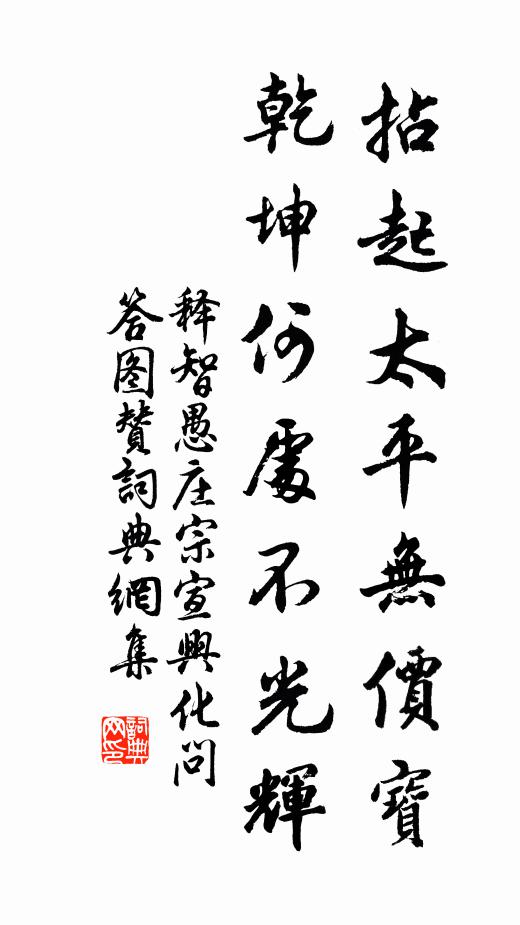 拈起太平無價寶
乾坤何處不光輝
释智愚庄宗宣興化問
答图贊詞典網集
詞典
网印